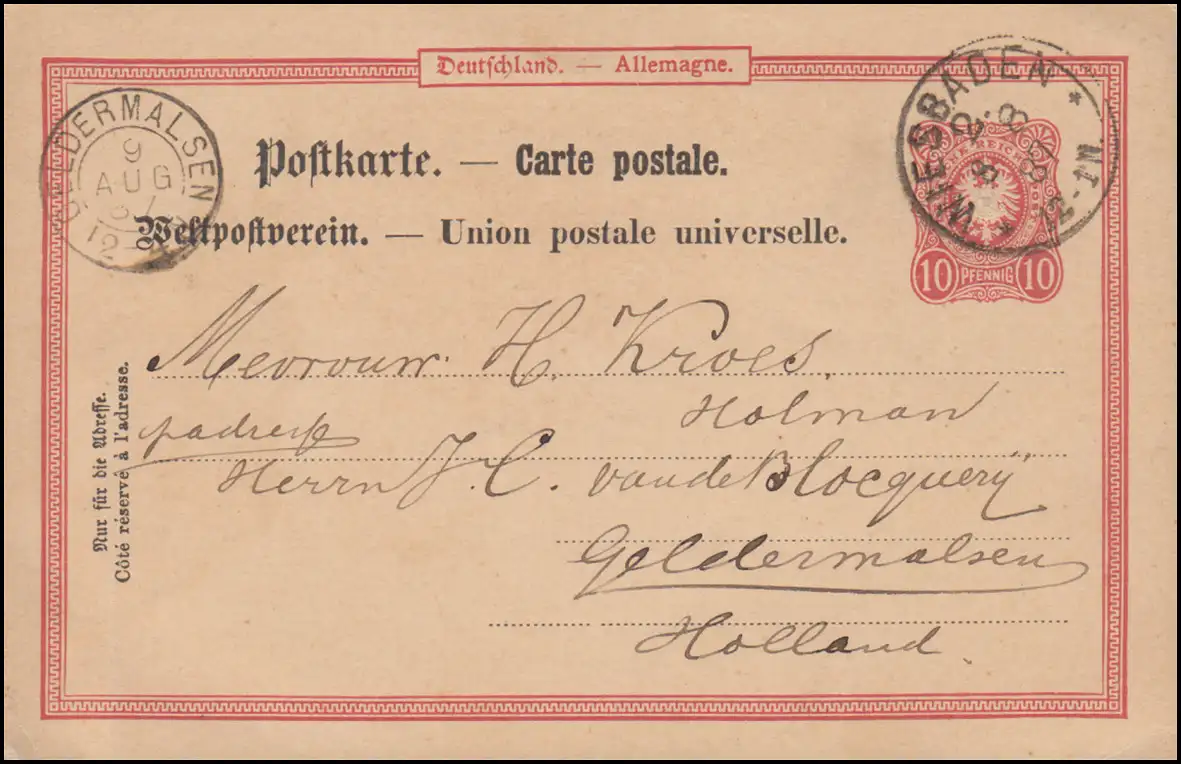 Deutschland. — Allemagne.
Postkarte. — Carte postale.
Weltpostverein. — Union postale universelle.
GELDERMALSEN
9
AUG
87
12-
WIESBADEN
8
8
87
12-1N.
REICH
10 PFENNIG 10
Mevrouw H. Kroes.
Holman
p adres
Herrn J. C. van de Blocquerij
Geldermalsen
Holland
Nur für die Adresse.
Côté réservé à l'adresse.